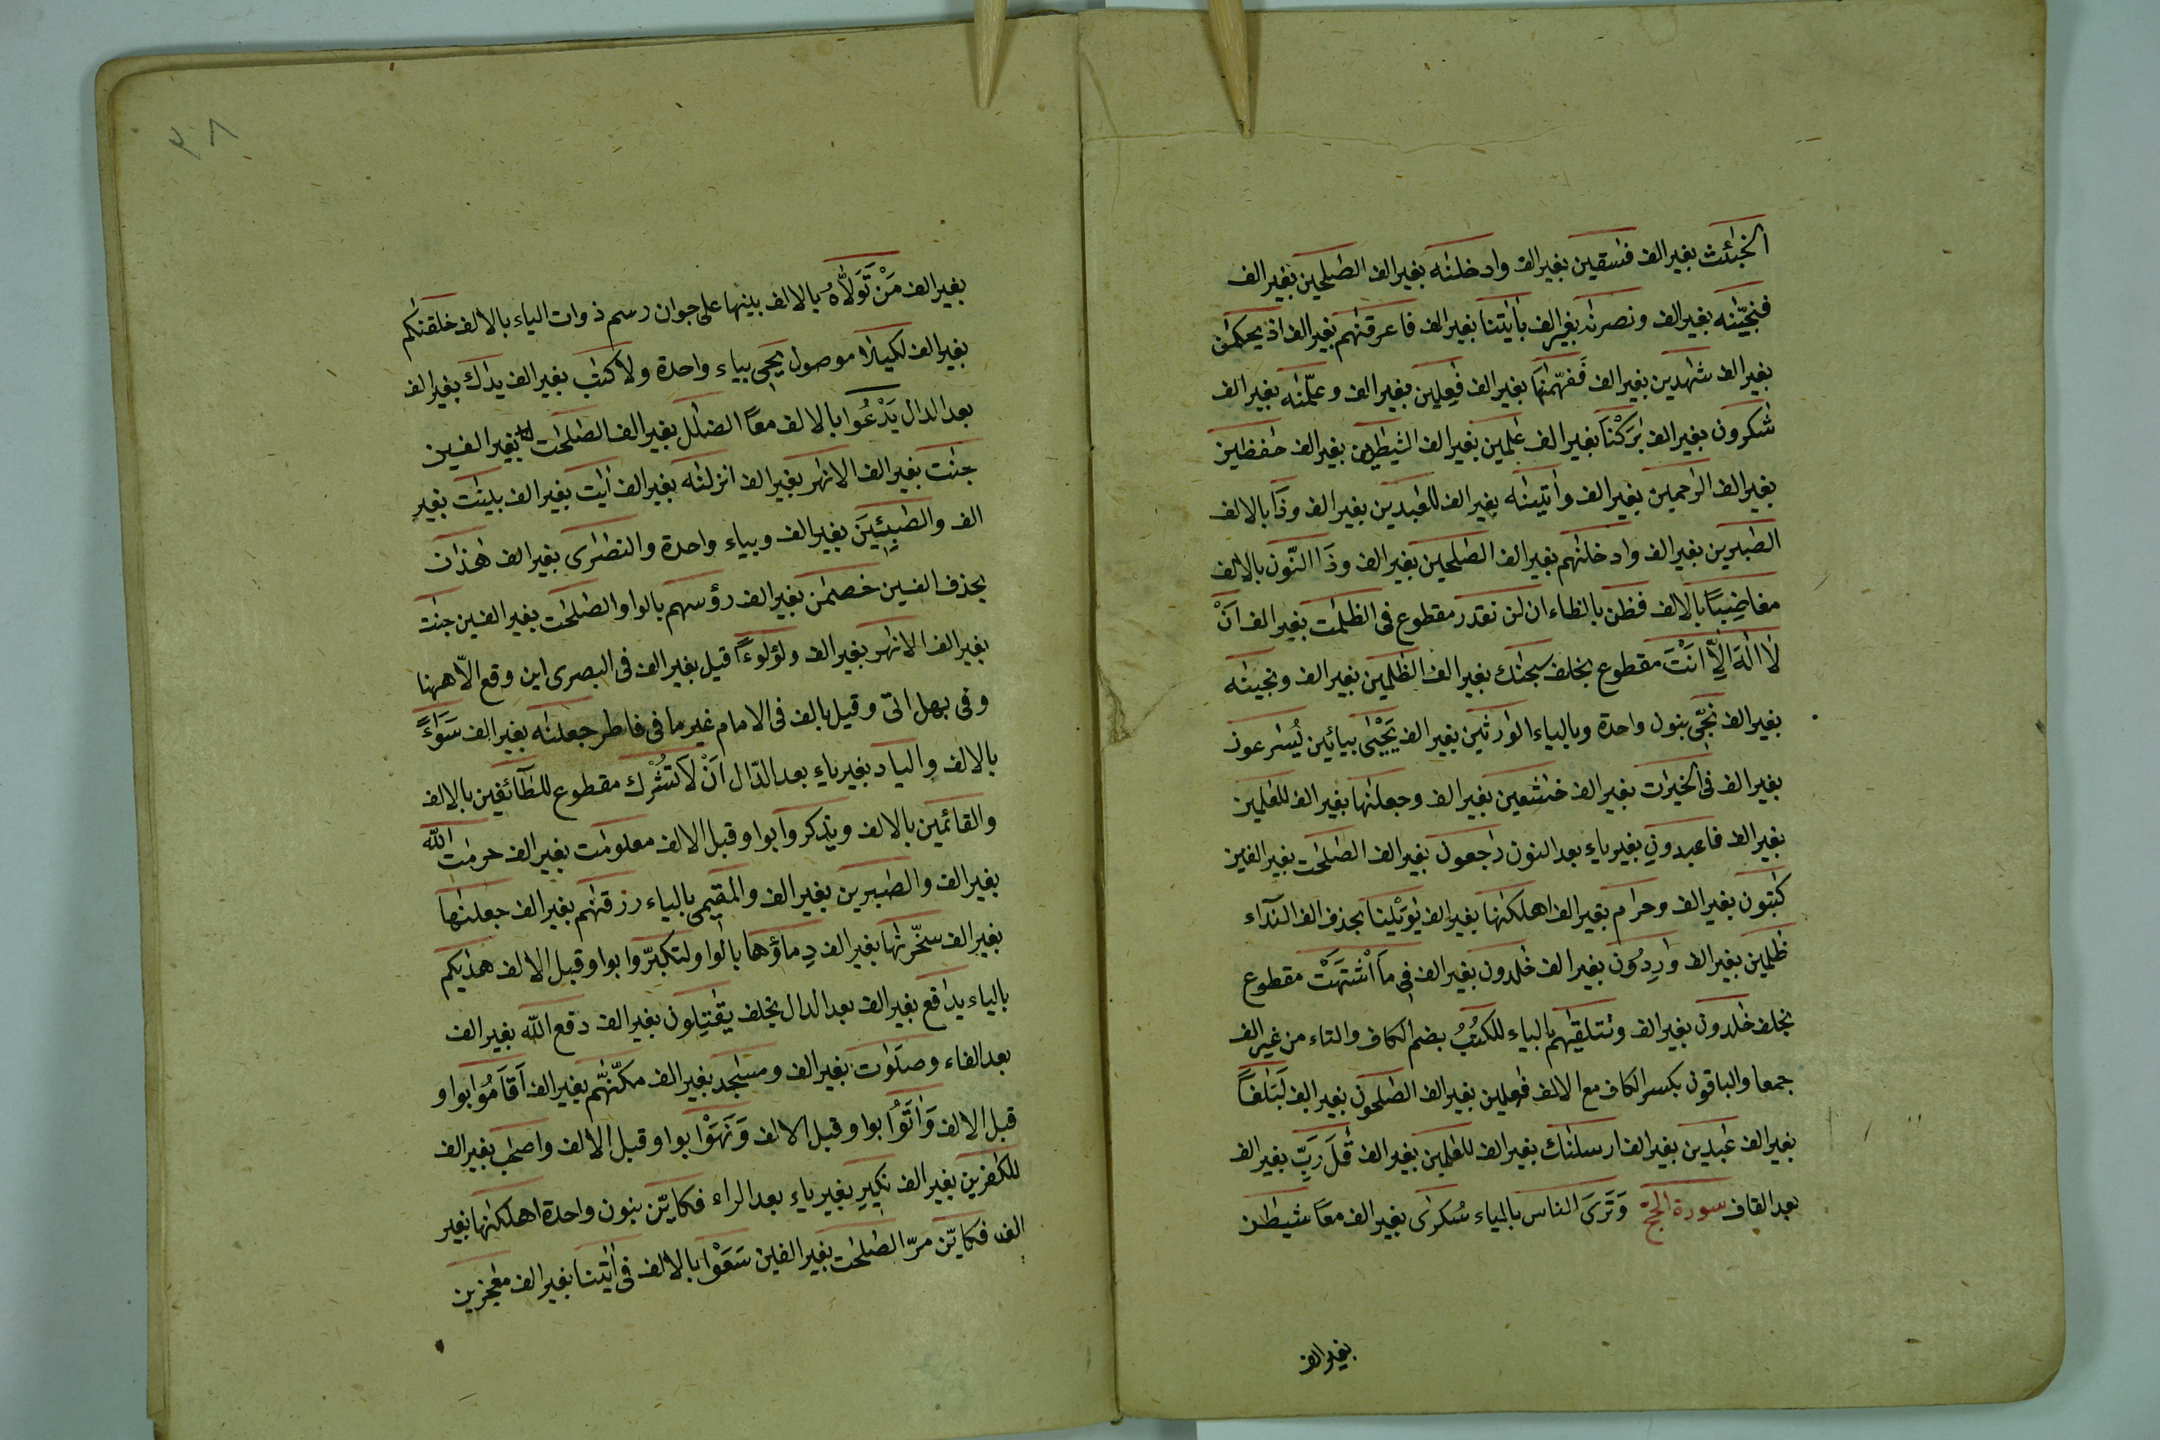 الخبٰئث بغير الف فٰسقين بغير الف وادخلنٰه بغير الف الصٰلحين بغير الف
فنجّيٰنه بغير الف ونصرنٰه بغير الف بأيٰتنا بغير الف فاغرقنٰهم بغير الف اذ يحكمٰن
بغير الف شٰهدين بغير الف فَفَهّمنٰها بغير الف فٰعلين بغير الف وعلّمنٰه بغير الف
شٰكرون بغير الف بٰرَكْنَا بغير الف عٰلمين بغير الف الشيٰطين بغير الف حٰفظين
بغير الف الرٰحمين بغير الف وأتينٰه بغير الف للعٰبدين بغير الف وذَا بالالف
الصٰبرين بغير الف وادخلنٰهم بغير الف الصٰلحين بغير الف وذَا النّون بالالف
مغاضِبًا بالالف فظن بالظاء ان لن نقدر مقطوع فى الظلمٰت بغير الف انْ
لا الٰهَ الّا انَتْ مقطوع بخلف سبحٰنك بغير الف الظٰلمين بغير الف ونجينٰه
بغير الف نُجّى بنون واحدة وبالياء الوٰرثين بغير الف يَحْيٰى بيائين يُسٰرعون
بغير الف فى الخيرٰت بغير الف خٰشعين بغير الف وجعلنٰها بغير الف للعٰلمين
بغير الف فاعبدونِ بغير ياء بعد النون رٰجعون بغير الف الصٰلحٰت بغير الفين
كٰتبون بغير الف وحرٰم بغير الف اهلكنٰها بغير الف يٰوَيْلَنا بحذف الف النداء
ظٰلمين بغير الف وٰرِدُون بغير الف خٰلدون بغير الف فى مَا اشْتَهَتْ مقطوع
بخلف خٰلدون بغير الف وتتلقيٰهم بالياء للكتُبُ بضم الكاف والتاء من غير الف
جمعا والباقون بكسر الكاف مع الالف فٰعلين بغير الف الصٰلحون بغير الف لَبَلٰغًا
بغير الف عٰبدين بغير الف ارسلنٰك بغير الف للعٰلمين بغير الف قٰلَ رَبِّ بغير الف
بعد القاف سورة الحج وَتَرَى الناس بالياء سُكٰرى بغير الف معًا شيطٰن
بغير الف
٣٨
بغير الف مَنْ تَوَلّاهُ بالالف بينها على جوان رسم ذوات الياء بالالف خلقنٰكم
بغير الف لكيلا موصول يحى بياء واحدة ولا كتٰب بغير الف يدٰك بغير الف
بعد الدال يَدْعُوا بالالف معًا الضلٰل بغير الف الصٰلحٰت بغير الفين
جنٰت بغير الف الانهٰر بغير الف انزلنٰه بغير الف أيٰت بغير الف بينٰت بغير
الف والصٰبِئِينَ بغير الف وبياء واحدة والنصٰرى بغير الف هٰذٰن
بحذف الفين خصمٰن بغير الف رؤسهم بالواو الصٰلحٰت بغير الفين جنٰت
بغير الف الانهٰر بغير الف ولؤلوءًا قيل بغير الف فى البصرى اين وقع الّا ههنا
وفى بهل اتى وقيل بالف فى الامام غير ما فى فاطر جعلنٰه بغير الف سَوَاءً
بالالف والباد بغير ياء بعد الدّال انْ لَا تُشْرك مقطوع للطّائفين بالالف
والقائمين بالالف ويذكروا بواو قبل الالف معلومٰت بغير الف حرمٰت اللّه
بغير الف والصٰبرين بغير الف والمقيمى بالياء رزقنٰهم بغير الف جعلنٰها
بغير الف سخّرنٰها بغير الف دِماؤها بالواو لتكبّروا بواو قبل الالف هدٰيكم
بالياء يدٰفع بغير الف بعد الدال بخلف يقٰتِلون بغير الف دفع اللّه بغير الف
بعد الفاء وصلَوٰت بغير الف ومسٰجد بغير الف مكّنّٰهم بغير الف أقَامُوا بواو
قبل الالف وَأتَوُا بواو قبل الالف وَنَهَوْا بواو قبل الالف واصحٰب بغير الف
للكٰفرين بغير الف نكيرِ بغير ياء بعد الراء فكايّن بنون واحدة اهلكنٰها بغير
الف فكايّن مرّ الصٰلحٰت بغير الفين سَعَوْا بالالف فى أيٰتنا بغير الف معٰجزين